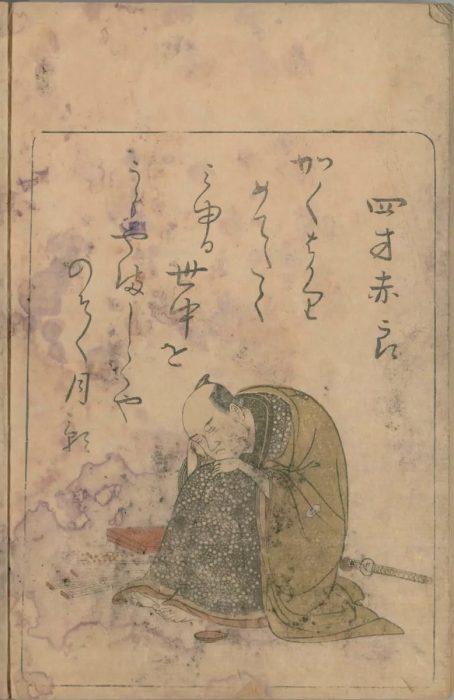 四方赤良
かくはかり
めてたく
みゆる世中を
うらやましくや
のそく月影